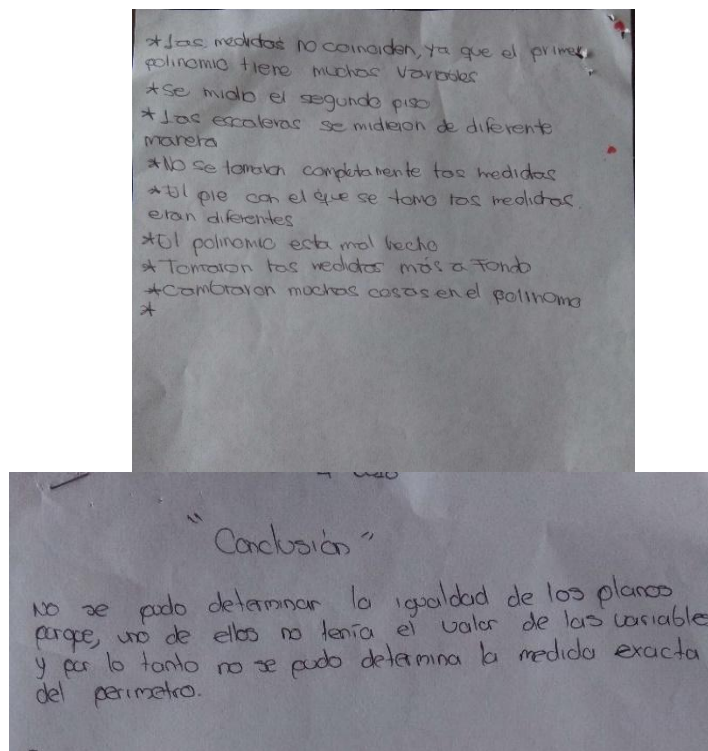 *Las medidas no coinciden, ya que el primer
polinomio tiene muchas variables
*Se midio el segundo piso
*Las escaleras se midieron de diferente
manera
*No se tomaron completamente las medidas
*El pie con el que se tomo las medidas
eran diferentes
*El polinomio esta mal hecho
*Tomaron las medidas más a fondo
*Cambiaron muchas cosas en el polinomo
*
"Conclusión"
No se pudo determinar la igualdad de los planos
porque, uno de ellos no tenía el valor de las variable
y por lo tanto no se pudo determina la medida exacta
del perimetro.